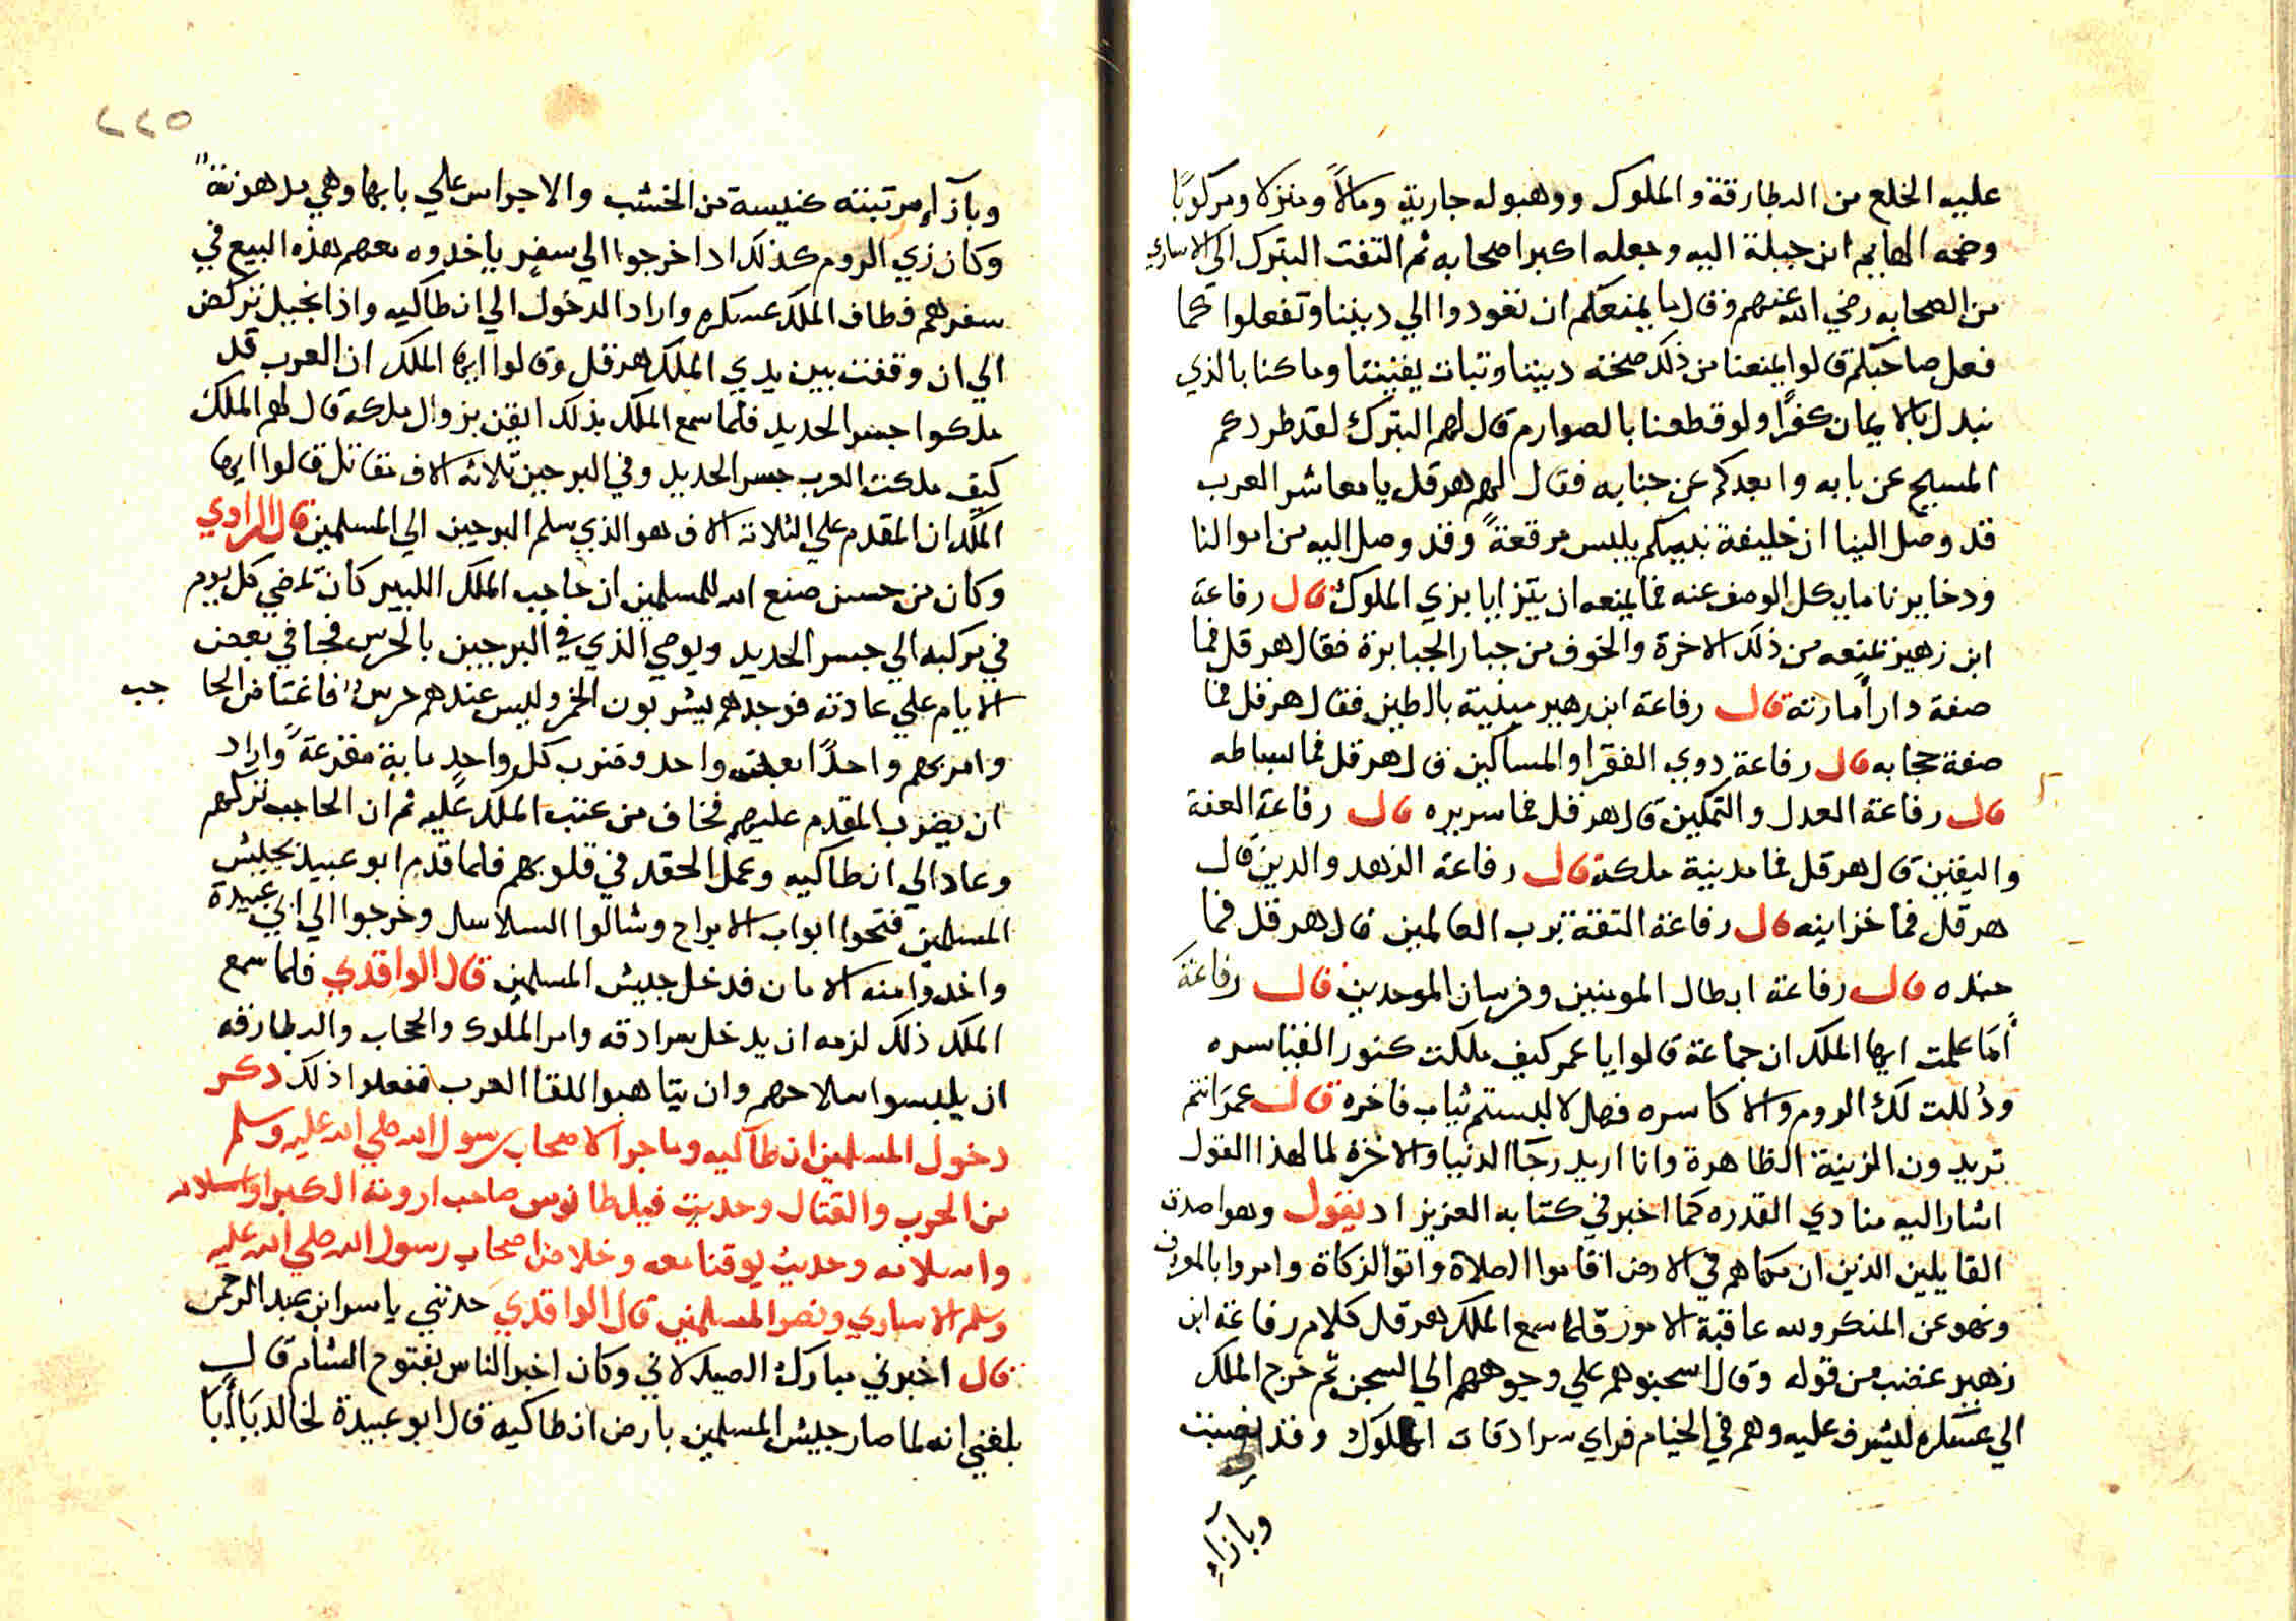 عليه الخلع من البطارقة والملوك ووهبوله جارية ومالاً ومنزلا ومركوبًا
وضمه الهايم ابن جبلة اليه وجعله اكبر اصحابه ثم التفت البترك الي الاساري
من الصحابه رضي الله عنهم وقال ما يمنعكم ان تعودوا الي ديننا وتفعلوا كما
فعل صاحبكم قالوا يمنعنا من ذلك صحة ديننا وثبات يقيننا وما كنا بالذي
نبدل بالايمان كفرًا ولو قطعنا بالصوارم قال لهم البترك لقد طردكم
المسيح عن بابه وابعدكم عن جنابه فقال لهم هرقل يا معاشر العرب
قد وصل الينا ان خليفة نبيكم يلبس مرقعةً وقد وصل اليه من اموالنا
ودخايرنا ما يكل الوصف عنه فما يمنعه ان يتزايا بزي الملوك قال رفاعة
ابن زهير تمنعه من ذلك الاخرة والخوف من جبار الجبابرة فقال هرقل فما
صفة دار امارته قال رفاعة ابن زهير مبنية بالطين فقال هرقل فما
صفة حجابه قال رفاعة ذوي الفقرا والمساكين قال هرقل فما بساطه
قال رفاعة العدل والتمكين قال هرقل فما سريره قال رفاعة العفة
واليقين قال هرقل فما مدينية ملكه قال رفاعة الزهد والدين قال
هرقل فما خزاينه قال رفاعة الثقة برب العالمين قال هرقل فما
جنده قال رفاعة ابطال المومنين وفرسان الموحدين قال رفاعة
أما علمت ايها الملك ان جماعة قالوا يا عمر كيف ملكت كنوز القياسره
وذُللت لك الروم والاكاسره فهل لا لبستم ثياب فاخره قال عمر انتم
تريدون الزينة الظاهرة وانا اريد رجا الدنيا والاخره لما لهذا القول
اشار اليه منادي القدره كما اخبر في كتابه العزيز اد يقول وهو اصدق
القايلين الذين ان مكناهم في الارض اقاموا الصلاة واتوا الزكاة وامروا بالمعروف
ونهو عن المنكر ولله عاقبة الامور فلما سمع الملك هرقل كلام رفاعة ابن
زهير غضب من قوله وقال اسحبوهم علي وجوههم الي السجن ثم خرج الملك
الي عسكره ليشرف عليه وهم في الخيام فراي سرادقات الملوك وقد نصبت
وبآزآء
٢٢٥
وبآزآء مرتبته كنيسة من الخشب والاجراس علي بابها وهي مدهونة
وكان زي الروم كذلك ادا خرجوا الي سفر ياخدوه معهم هذه البيع في
سفرهم فطاف الملك عسكره واراد الدخول الي انطاكيه واذا بخيل تركض
الي ان وقفت بين يدي الملك هرقل وقالوا ايها الملك ان العرب قد
ملكوا جسر الحديد فلما سمع الملك بذلك ايقن بزوال ملكه قال لهم الملك
كيف ملكت العرب جسر الحديد وفي البرجين ثلاثه الاف مقاتل قالوا ايها
الملك ان المقدم علي الثلاثه الاف هو الذي سلم البرجين الي المسلمين قال الراوي
وكان من حسن صنع الله للمسلمين ان حاجب الملك الكبير كان يمضي كل يوم
في مركبه الي جسر الحديد ويوصي الذي في البرجين بالحرس فجا في بعض
الايام علي عادته فوجدهم يشربون الخمر وليس عندهم حرس فاغتاض الحا جب
وامر بهم واحدًا بعد واحد وضرب كل واحد ماية مقرعة واراد
ان يضرب المقدم عليهم فخاف من عتب الملك عليه ثم ان الحاجب تركهم
وعاد الي انطاكيه وعمل الحقد في قلوبهم فلما قدم ابو عبيد بجيش
المسلمين فتحوا ابواب الابراج وشالوا السلاسل وخرجوا الي ابي عبيدة
واخدوا منه الامان فدخل جيش المسلمين قال الواقدي فلما سمع
الملك ذلك لزمه ان يدخل سرادقه وامر الملوك والحجاب والبطارقه
ان يلبسوا سلاحهم وان يتاهبوا للقا العرب ففعلوا ذلك ذكر
دخول المسلمين انطاكيه وما جرا لاصحاب رسول الله صلي الله عليه وسلم
من الحرب والقتال وحديث فيلطانوس صاحب ارومة الكبرا واسلامه
واسلامه وحديث يوقنا معه وخلاص اصحاب رسول الله صلي الله عليه
وسلم الاساري ونصر المسلمين قال الواقدي حدثني ياسر ابن عبد الرحمن
قال اخبرني مبارك الصيدلاني وكان اخبر الناس بفتوح الشام قال
بلغني انه لما صار جيش المسلمين بارض انطاكيه قال ابو عبيدة لخالد يا أبا